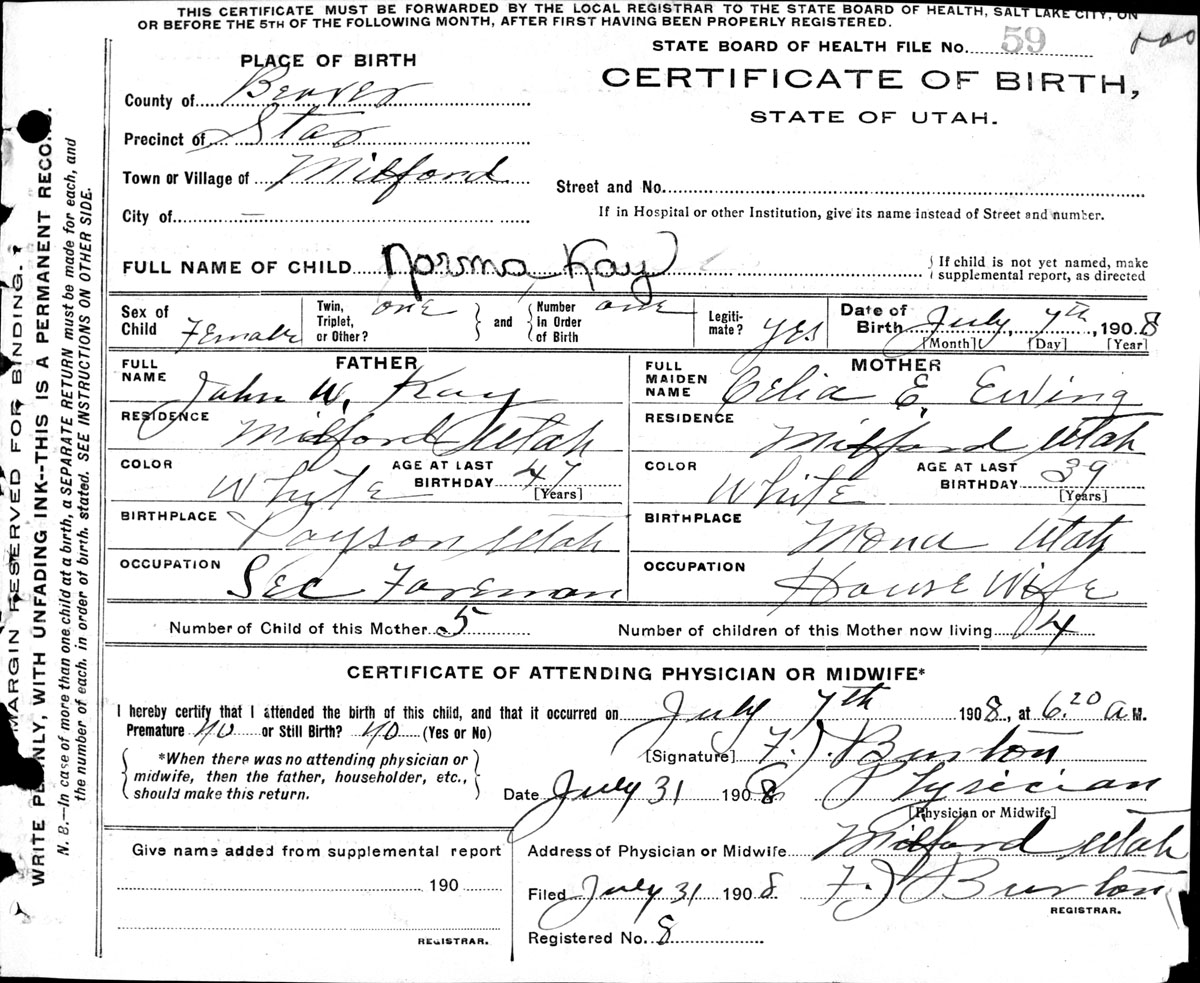 THIS CERTIFICATE MUST BE FORWARDED BY THE LOCAL REGISTRAR TO THE STATE BOARD OF HEALTH, SALT LAKE CITY, ON
OR BEFORE THE 5TH OF THE FOLLOWING MONTH, AFTER FIRST HAVING BEEN PROPERLY REGISTERED.
STATE BOARD OF HEALTH FILE No. 59
PLACE OF BIRTH
CERTIFICATE OF BIRTH,
STATE OF UTAH.
County of Beaver
Precinct of Star
Town or Village of Milford
Street and No.
City of —
If in Hospital or other Institution, give its name instead of Street and number.
FULL NAME OF CHILD Norma Kay
{ If child is not yet named, make
supplemental report, as directed
Sex of Child Female
Twin, Triplet, or Other? one } and { Number in Order of Birth one
Legiti-mate? yes
Date of Birth July 7th, 1908
[Month] [Day] [Year]
FATHER
FULL NAME John W. Kay
RESIDENCE Milford Utah
COLOR White AGE AT LAST BIRTHDAY 47 [Years]
BIRTHPLACE Payson Utah
OCCUPATION Sec Foreman
MOTHER
FULL MAIDEN NAME Celia E. Ewing
RESIDENCE Milford Utah
COLOR White AGE AT LAST BIRTHDAY 39 [Years]
BIRTHPLACE Mona Utah
OCCUPATION House Wife
Number of Child of this Mother 5 Number of children of this Mother now living 4
CERTIFICATE OF ATTENDING PHYSICIAN OR MIDWIFE*
I hereby certify that I attended the birth of this child, and that it occurred on July 7th 1908, at 6.20 a M.
Premature No or Still Birth? No (Yes or No)
{ *When there was no attending physician or
midwife, then the father, householder, etc.,
should make this return. }
[Signature] F. J. Burton
Date July 31 1908 Physician
[Physician or Midwife]
Give name added from supplemental report
190
REGISTRAR.
Address of Physician or Midwife Milford Utah
Filed July 31 1908. F. J. Burton
REGISTRAR.
Registered No. 8
MARGIN RESERVED FOR BINDING.
WRITE PLAINLY, WITH UNFADING INK--THIS IS A PERMANENT RECORD.
N. B.—In case of more than one child at a birth, a SEPARATE RETURN must be made for each, and
the number of each, in order of birth, stated. SEE INSTRUCTIONS ON OTHER SIDE.